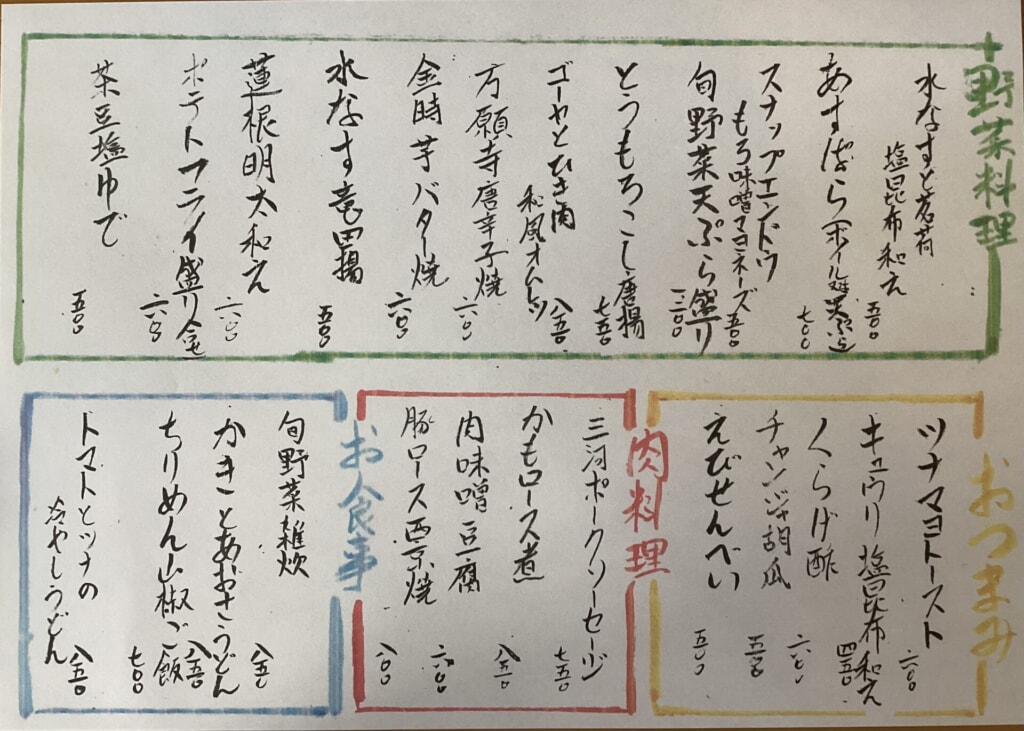 野菜料理
水なすと茗荷
塩昆布和え
五〇〇
あすぱら(ホイル焼 天ぷら)
七〇〇
スナップエンドウ
もろ味噌マヨネーズ
五〇〇
旬野菜天ぷら盛り
一二〇〇
とうもろこし唐揚
七五〇
ゴーヤとひき肉
和風オムレツ
八五〇
万願寺唐辛子焼
六〇〇
金時芋バター焼
六〇〇
水なす竜田揚
五〇〇
蓮根明太和え
六〇〇
ポテトフライ盛り合せ
六〇〇
茶豆塩ゆで
五〇〇
おつまみ
ツナマヨトースト
六〇〇
キュウリ塩昆布和え
四五〇
くらげ酢
六〇〇
チャンジャ胡瓜
五五〇
えびせんべい
五〇〇
肉料理
三河ポークソーセージ
七五〇
かもロース煮
八五〇
肉味噌豆腐
六〇〇
豚ロース西京焼
八〇〇
お食事
旬野菜雑炊
八五〇
かきとあおさうどん
八五〇
ちりめん山椒ご飯
七〇〇
トマトとツナの
冷やしうどん
八五〇